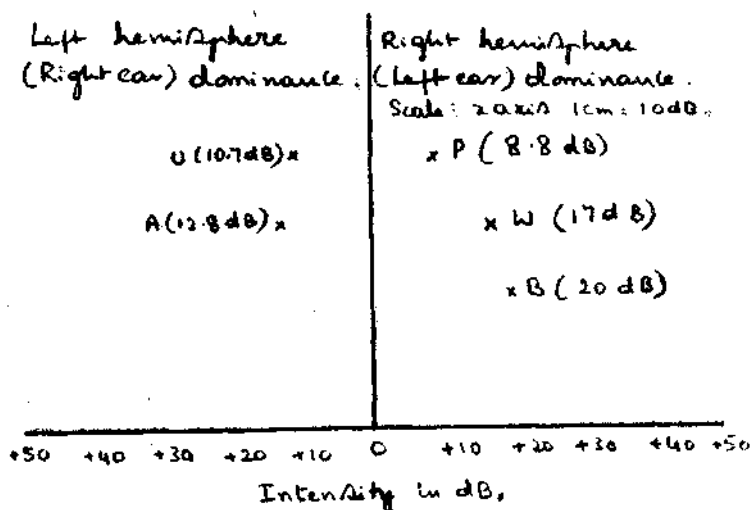 Left hemisphere
(Right ear) dominance.
Right hemisphere
(Left ear) dominance.
Scale: x axis 1cm = 10dB.
U (10.7dB)x
x P (8.8 dB)
A (12.8 dB) x
x W (17 dB)
x B (20 dB)
+50 +40 +30 +20 +10 0 +10 +20 +30 +40 +50
Intensity in dB.